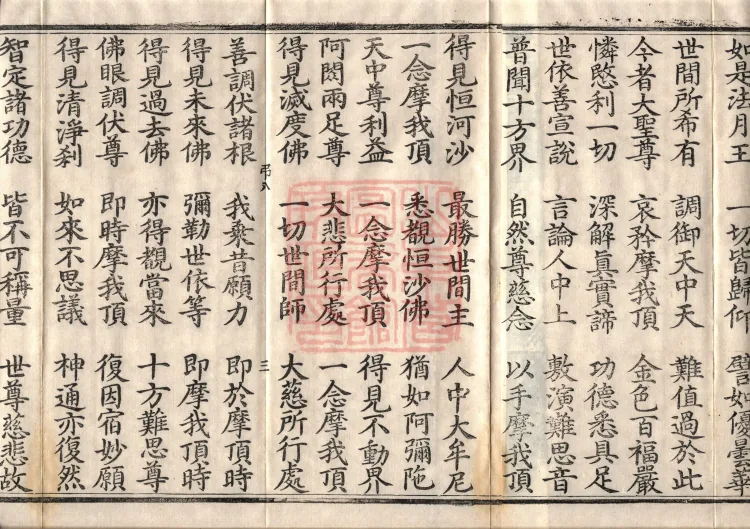 如是法月王 一切皆歸仰 譬如優曇華
世間所希有 調御天中天 難值過於此
今者大聖尊 哀矜摩我頂 金色百福嚴
憐愍利一切 深解眞實諦 功德悉具足
世依善宣說 言論人中上 敷演難思音
普聞十方界 自然尊慈念 以手摩我頂
得見恒河沙 最勝世間主 人中大牟尼
一念摩我頂 悉觀恒沙佛 猶如阿彌陁
天中尊利益 一念摩我頂 得見不動界
阿閦兩足尊 大悲所行處 一念摩我頂
得見滅度佛 一切世間師 大慈所行處
弔八 三
善調伏諸根 我乘昔願力 即於摩頂時
得見未來佛 彌勒世依等 即摩我頂時
得見過去佛 亦得觀當來 十方難思尊
佛眼調伏尊 即時摩我頂 復因宿妙願
得見清淨刹 如來不思議 神通亦復然
智定諸功德 皆不可稱量 世尊慈悲故